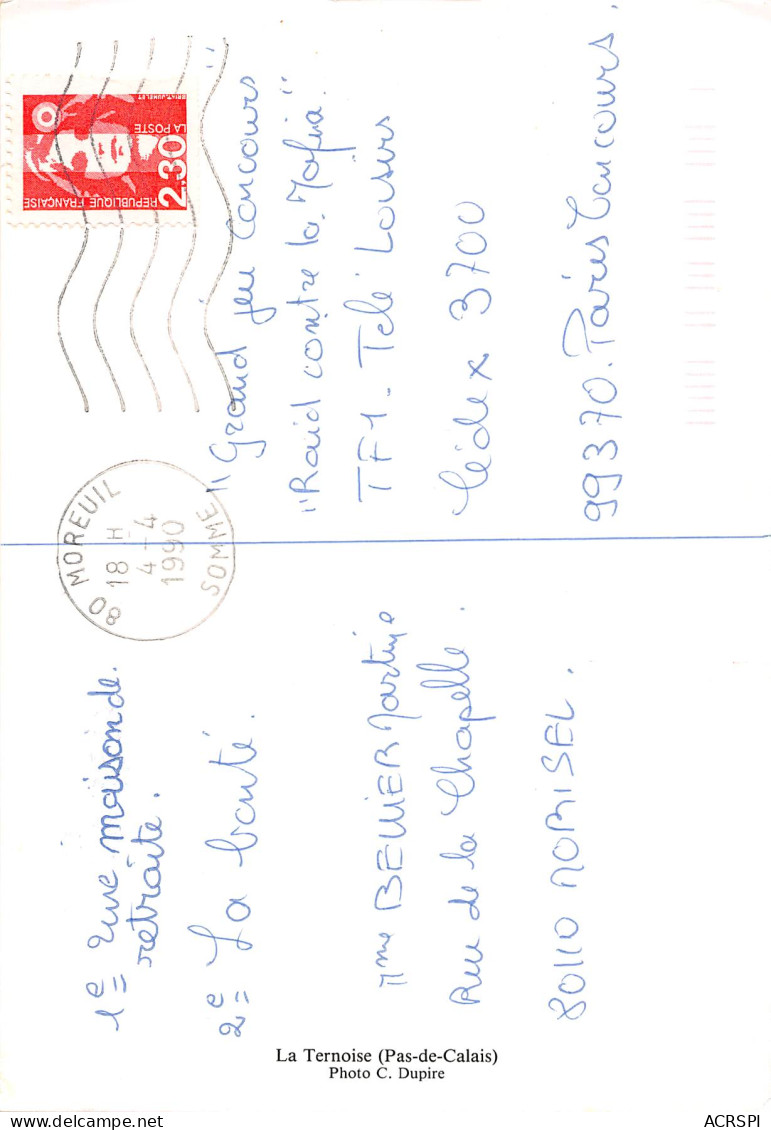 1e Une maison de
retraite.
2e La bonté.
Mme BELLIER Martine
Rue de la Chapelle.
80110 MORISEL.
80 MOREUIL
18 H
4 - 4
1990
SOMME
RÉPUBLIQUE FRANÇAISE
2,30
LA POSTE
BRIAT-JUMELET
"Grand jeu Concours"
"Raid contre la Mafia"
TF1 - Télé Loisirs
Cédex 3700
99370. Paris Concours.
La Ternoise (Pas-de-Calais)
Photo C. Dupire
ACRSPI